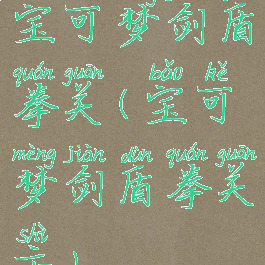 宝可梦剑盾
quán guān bǎo kě
拳关(宝可
mèng jiàn dùn quán guān
梦剑盾拳关
shì